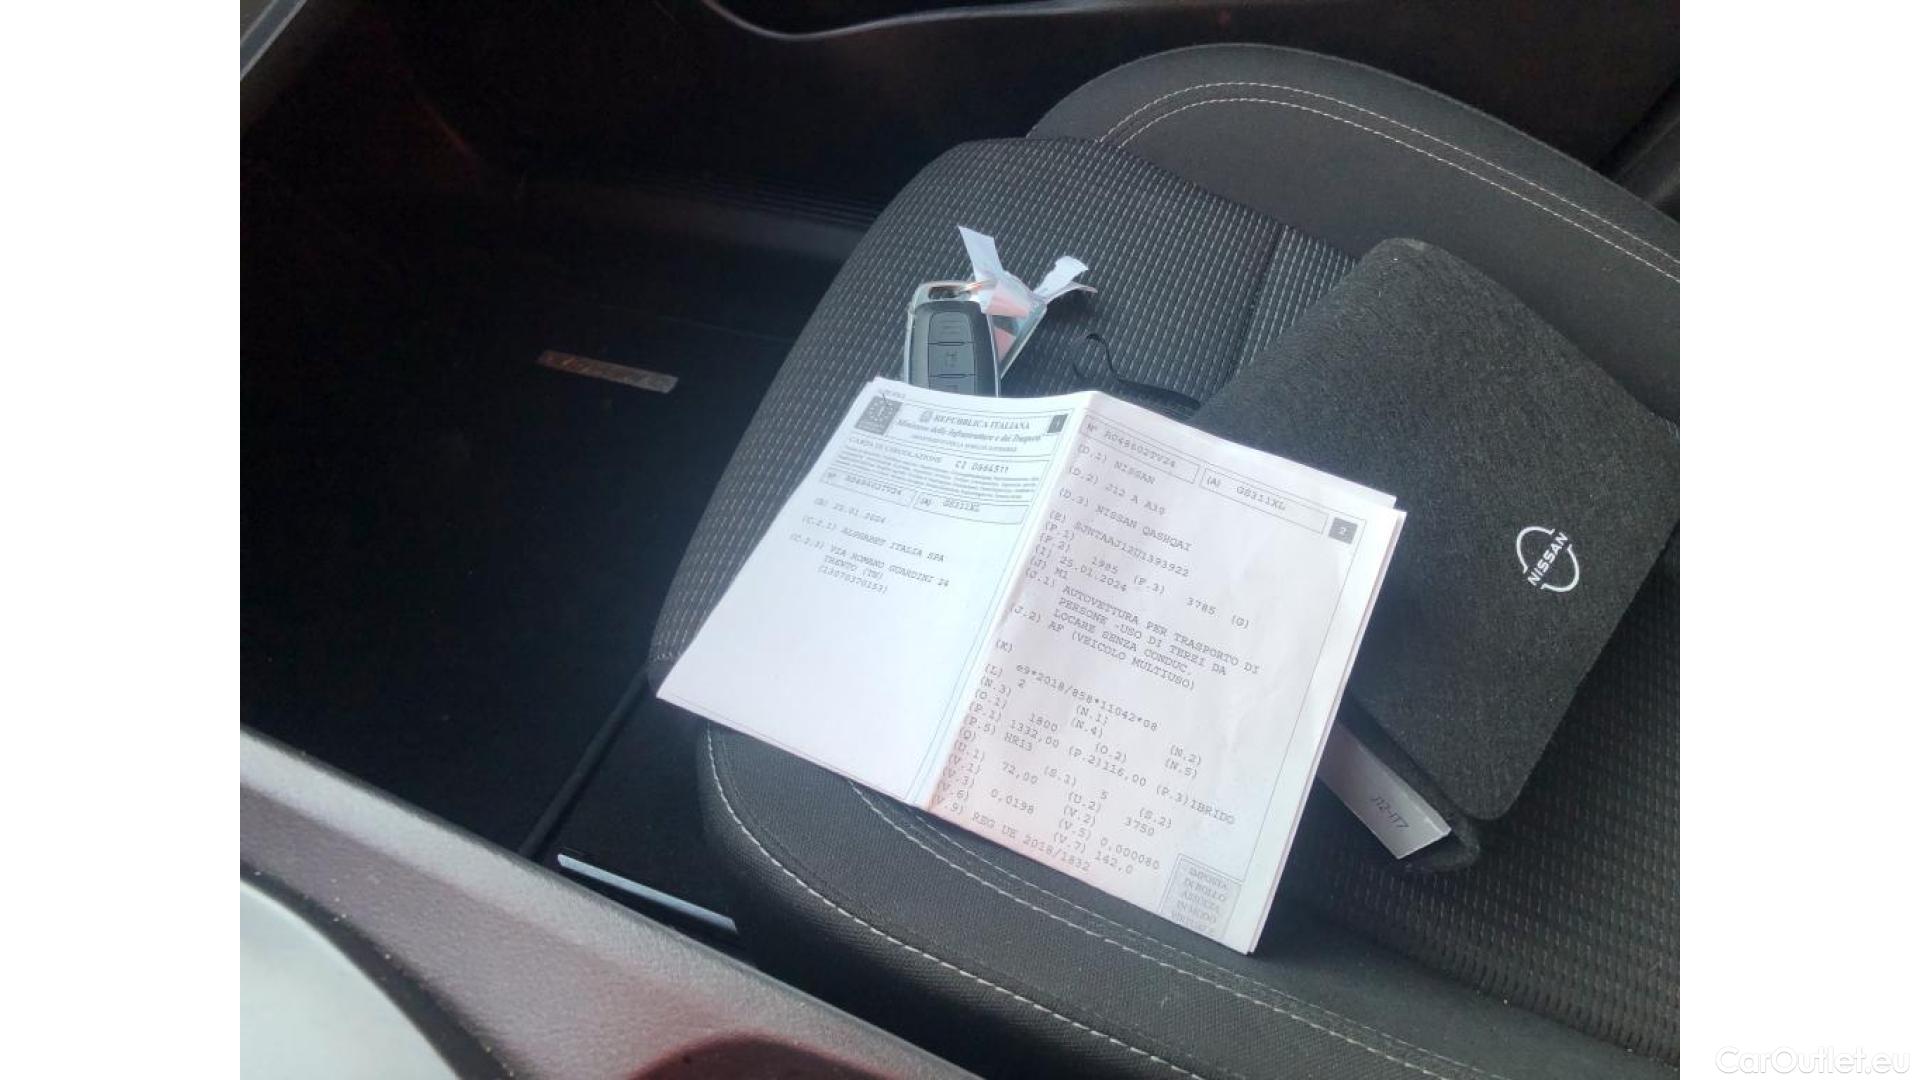 REPUBBLICA ITALIANA
Ministero delle Infrastrutture e dei Trasporti
1
CARTA DI CIRCOLAZIONE
N° R048602TV24
(A) GS311XL
(B) 25.01.2024
(C.2.1) ALPHABET ITALIA SPA
(C.2.3) VIA ROMANO GUARDINI 24
TRENTO (TN)
N° R048602TV24
(A) GS311XL
2
(D.1) NISSAN
(D.2) J12 A A30
(D.3) NISSAN QASHQAI
(E) SJNTAAJ12U1393922
(F.1)
(F.2) 1985 (F.3) 3785 (G)
(I) 25.01.2024
(J) M1
(J.1) AUTOVETTURA PER TRASPORTO DI
PERSONE -USO DI TERZI DA
LOCARE SENZA CONDUC.
(J.2) AF (VEICOLO MULTIUSO)
(K)
e9*2018/858*11042*08
(L) 2 (N.1) (N.2)
(N.3) (N.4) (N.5)
(O.1) 1800 (O.2)
(P.1) 1332,00 (P.2)116,00 (P.3)IBRIDO
(P.5) HR13
(Q) (S.1) 5 (S.2)
(U.1) 72,00 (U.2) 3750
(V.1) (V.2)
(V.3) 0,0198 (V.5) 0,000080
(V.6) (V.7) 142,0
(V.9) REG UE 2018/1832
IMPOSTA
DI BOLLO
ASSOLTA
IN MODO
VIRTUALE
NISSAN
J12-IT7
CarOutlet.eu